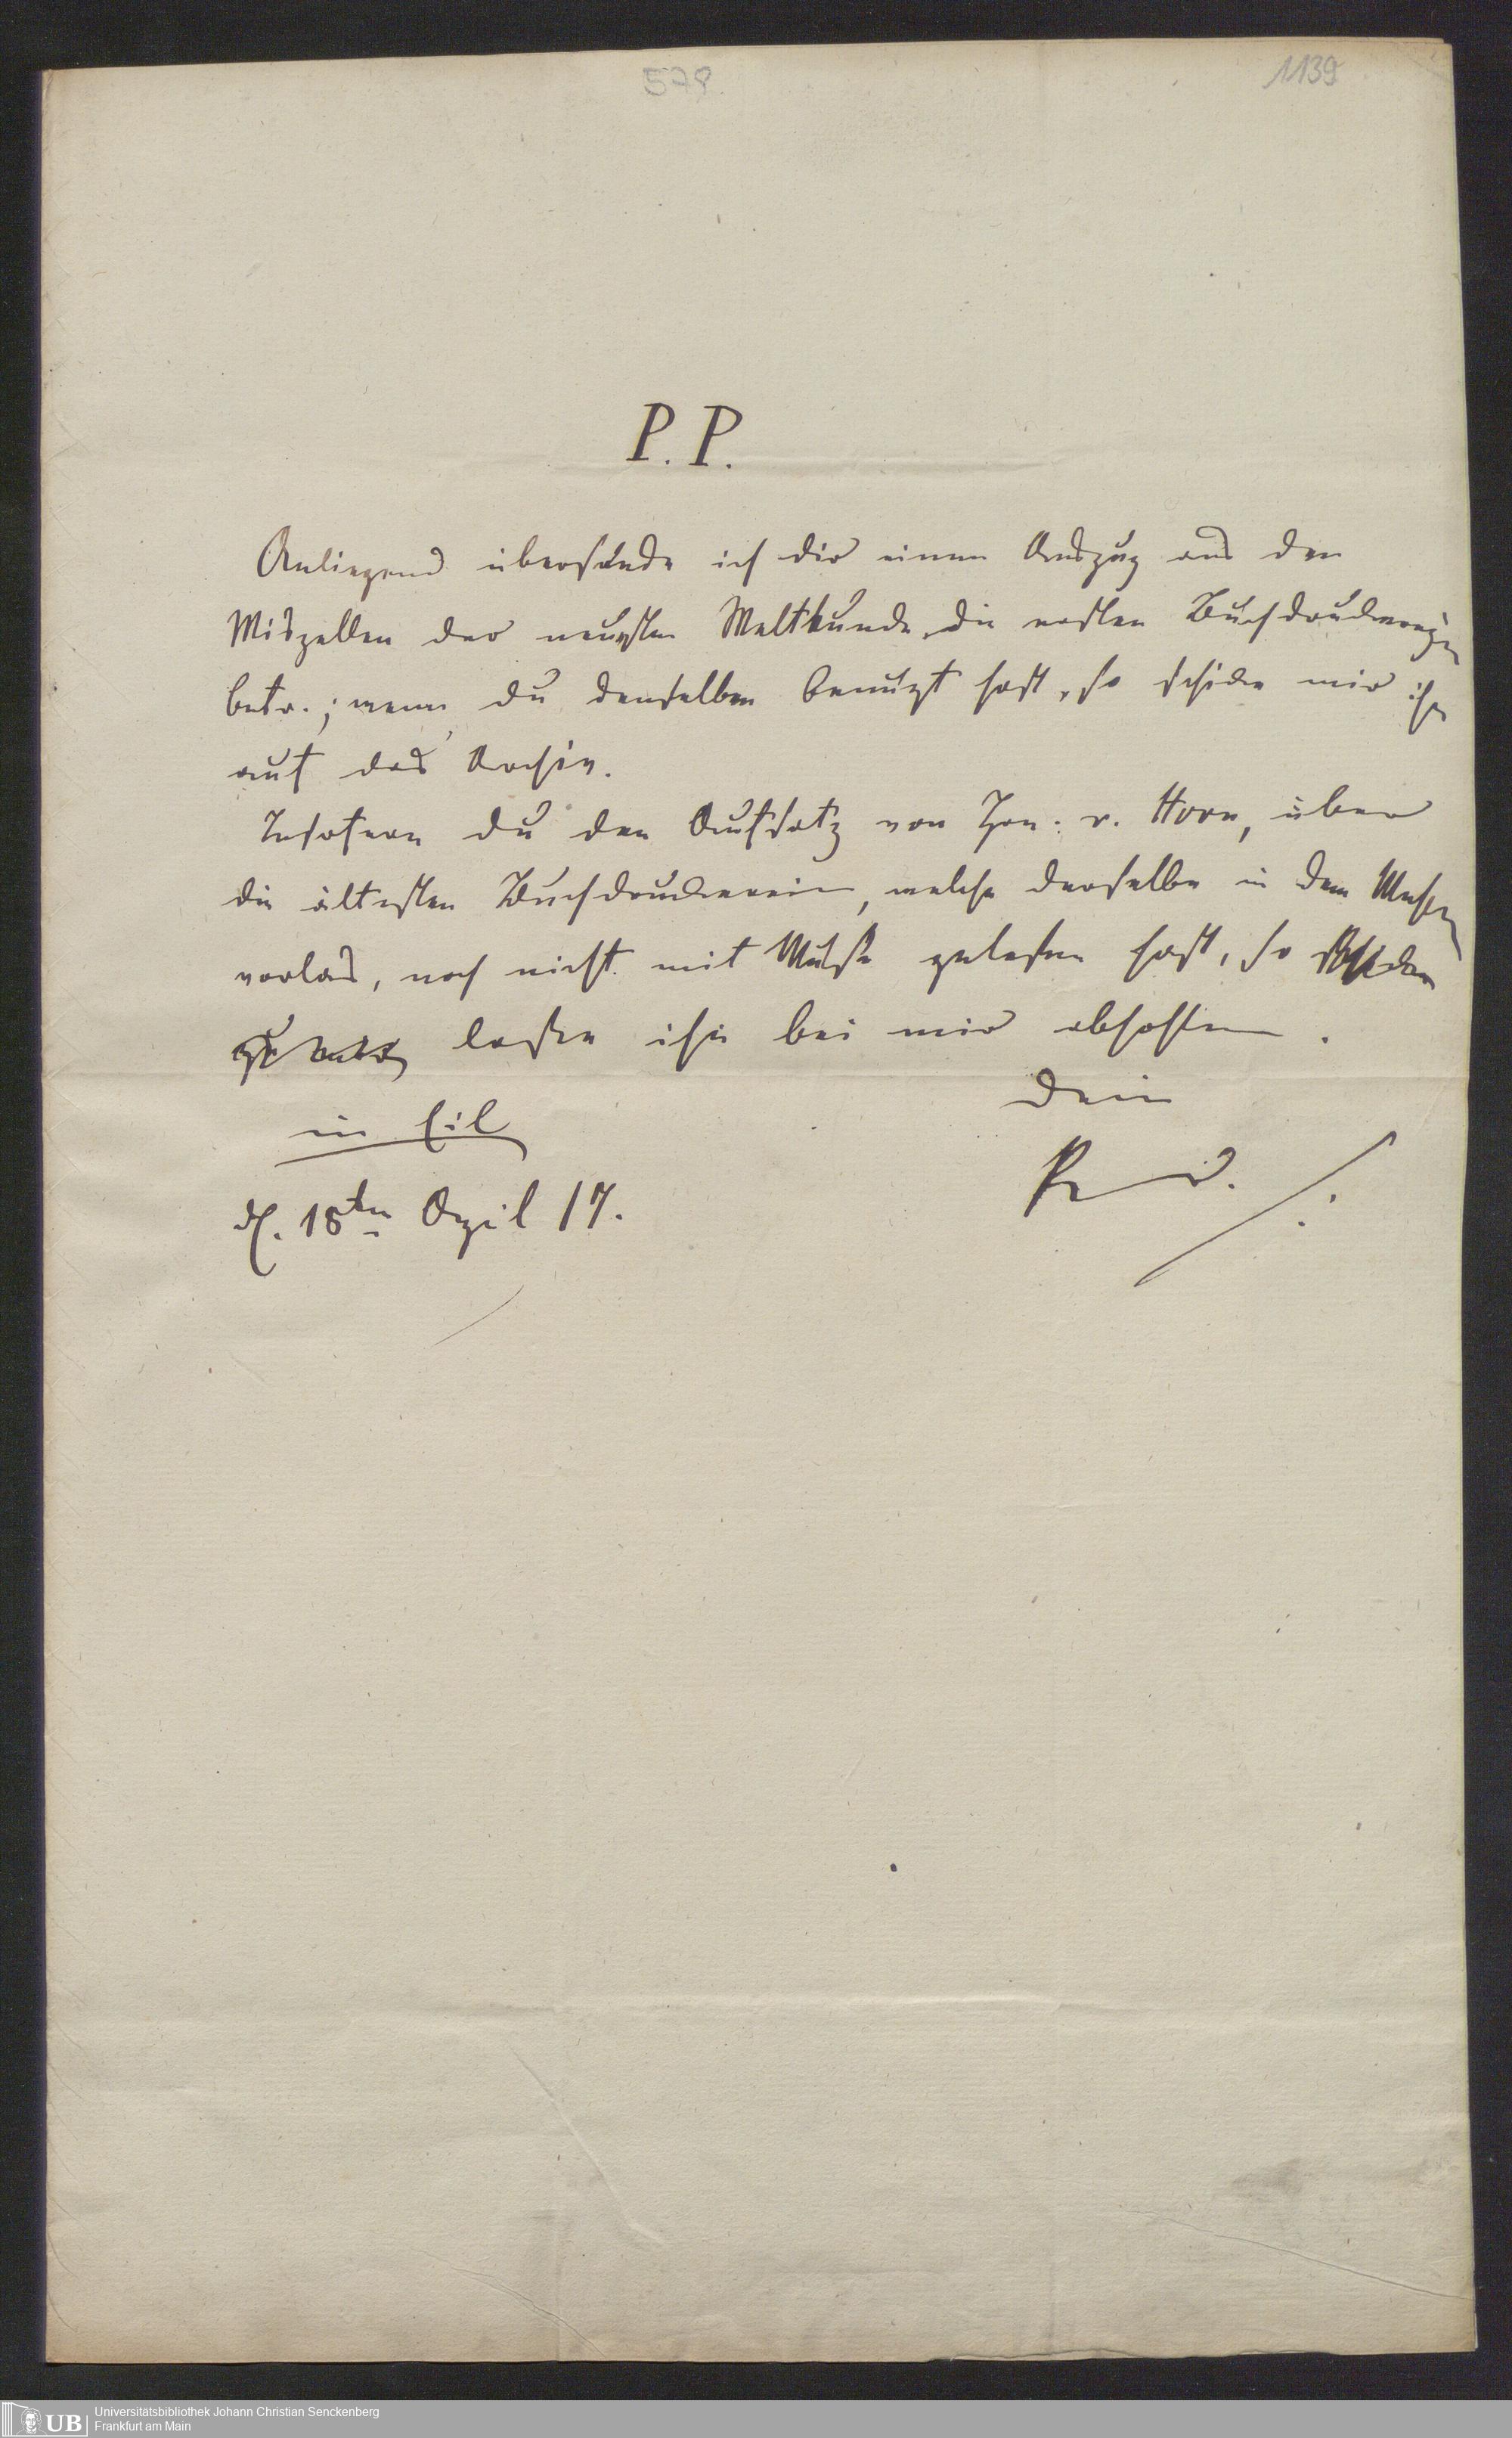 578
1139
P. P.
Anliegend übersende ich dir einen Auszug aus den
Miszellen der neusten Weltkunde, die ersten Buchdruckereien
betr.; wenn du denselben benuzt hast, so schicke mir ihn
auf das Archiv.
Insofern du den Aufsatz von Hrn. v. Horn, über
die ältesten Buchdruckereien, welche derselbe in dem Museum
vorlas, noch nicht mit Muse gelesen hast, so
lasse ihn bei mir abhohlen.
Dein
in Eil
d. 18ten April 17.
UB Universitätsbibliothek Johann Christian Senckenberg
Frankfurt am Main